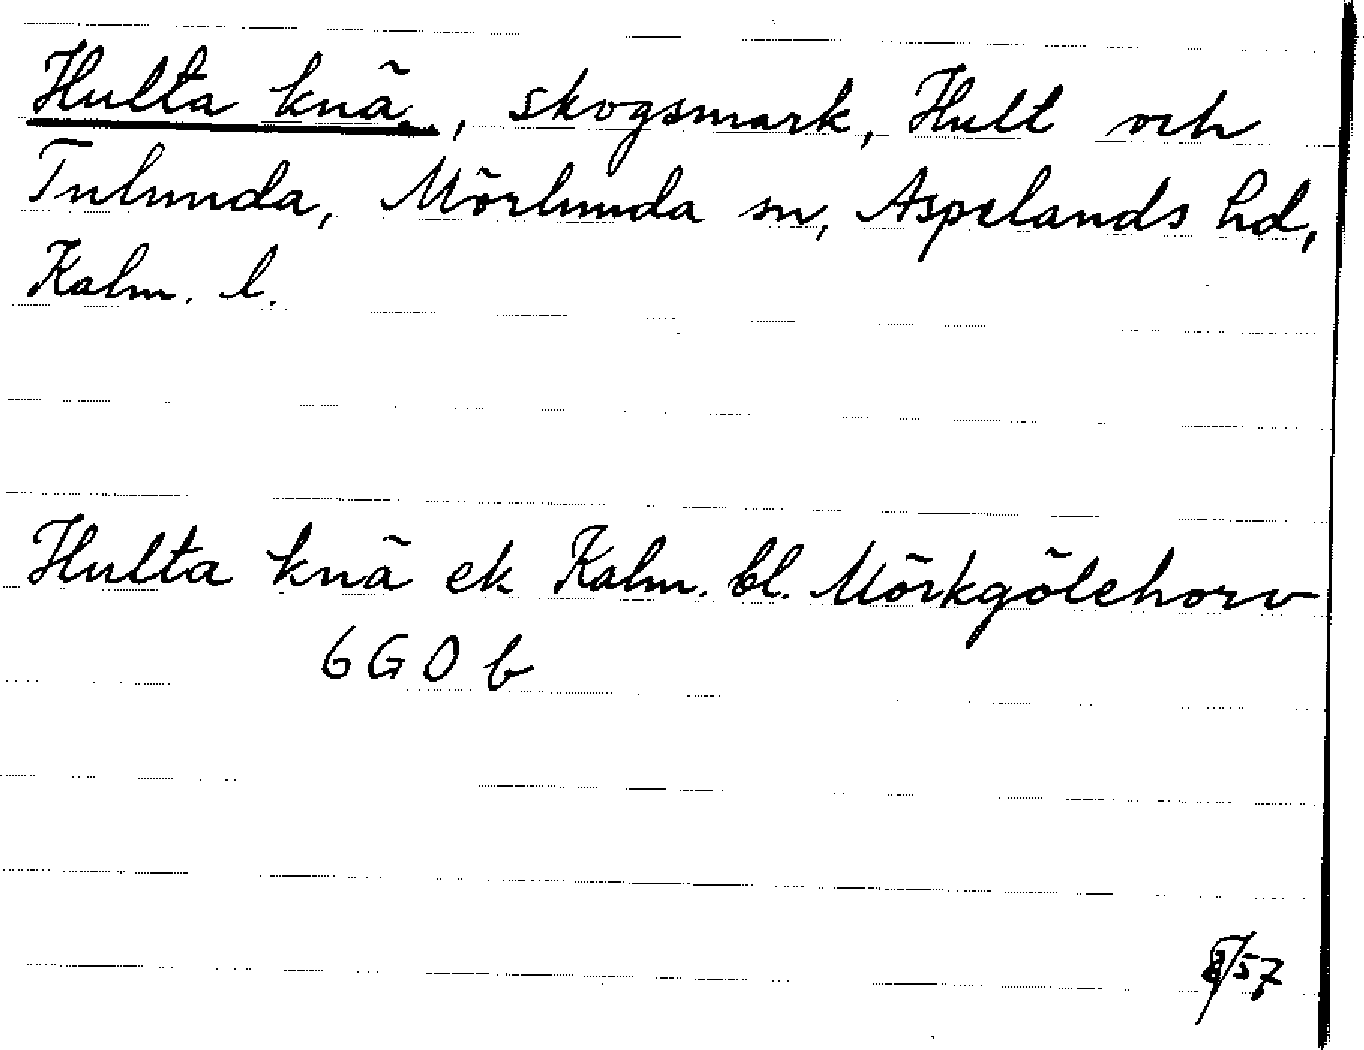 Hulta knä, skogsmark, Hult och
Tulunda, Mörlunda sn, Aspelands hd,
Kalm. l.
Hulta knä ek Kalm. bl. Mörkgölehorv
6G0b
/57